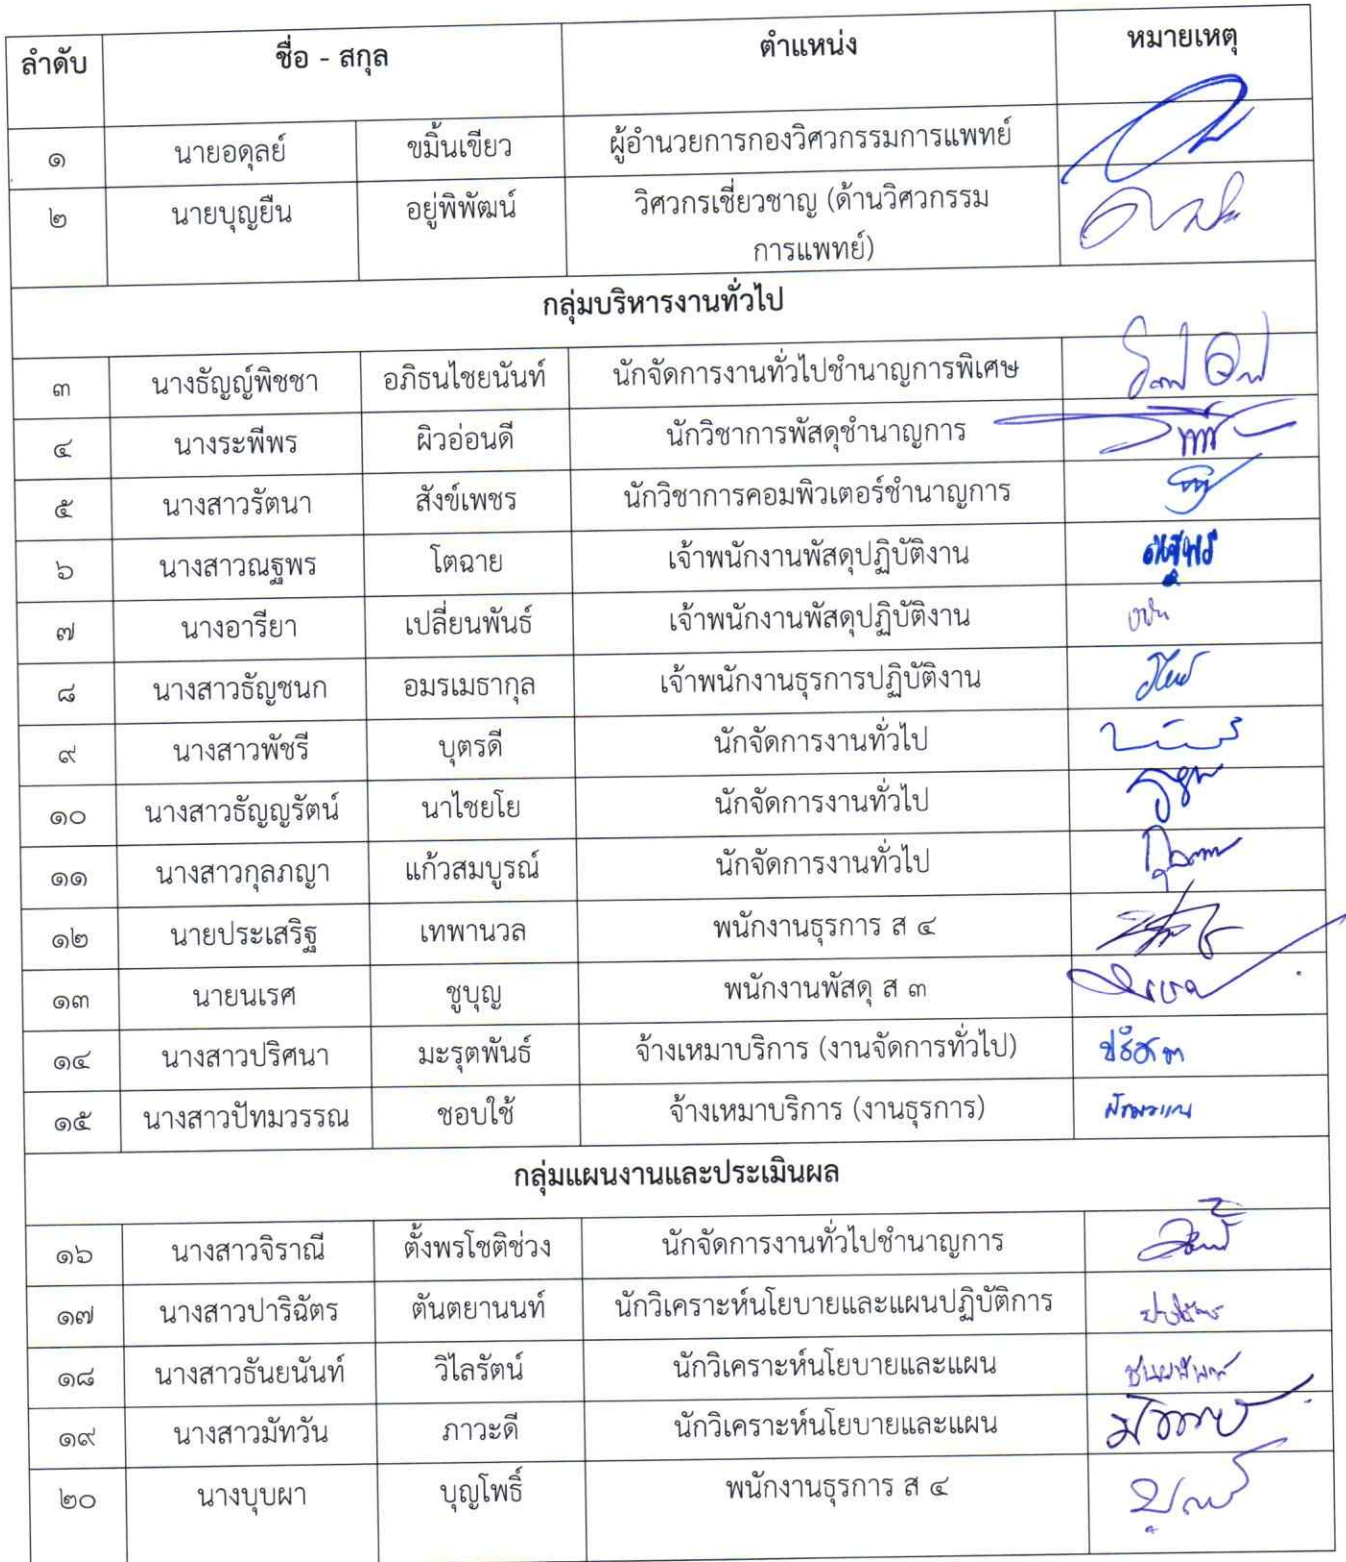 ลำดับ ชื่อ - สกุล ตำแหน่ง หมายเหตุ
๑ นายอดุลย์ ขมิ้นเขียว ผู้อำนวยการกองวิศวกรรมการแพทย์
๒ นายบุญยืน อยู่พิพัฒน์ วิศวกรเชี่ยวชาญ (ด้านวิศวกรรม
การแพทย์)
กลุ่มบริหารงานทั่วไป
๓ นางธัญญ์พิชชา อภิธนไชยนันท์ นักจัดการงานทั่วไปชำนาญการพิเศษ
๔ นางระพีพร ผิวอ่อนดี นักวิชาการพัสดุชำนาญการ
๕ นางสาวรัตนา สังข์เพชร นักวิชาการคอมพิวเตอร์ชำนาญการ
๖ นางสาวณฐพร โตฉาย เจ้าพนักงานพัสดุปฏิบัติงาน
๗ นางอารียา เปลี่ยนพันธ์ เจ้าพนักงานพัสดุปฏิบัติงาน
๘ นางสาวธัญชนก อมรเมธากุล เจ้าพนักงานธุรการปฏิบัติงาน
๙ นางสาวพัชรี บุตรดี นักจัดการงานทั่วไป
๑๐ นางสาวธัญญรัตน์ นาไชยโย นักจัดการงานทั่วไป
๑๑ นางสาวกุลภญา แก้วสมบูรณ์ นักจัดการงานทั่วไป
๑๒ นายประเสริฐ เทพานวล พนักงานธุรการ ส ๔
๑๓ นายนเรศ ชูบุญ พนักงานพัสดุ ส ๓
๑๔ นางสาวปริศนา มะรุตพันธ์ จ้างเหมาบริการ (งานจัดการทั่วไป)
๑๕ นางสาวปัทมวรรณ ชอบใช้ จ้างเหมาบริการ (งานธุรการ)
กลุ่มแผนงานและประเมินผล
๑๖ นางสาวจิราณี ตั้งพรโชติช่วง นักจัดการงานทั่วไปชำนาญการ
๑๗ นางสาวปาริฉัตร ตันตยานนท์ นักวิเคราะห์นโยบายและแผนปฏิบัติการ
๑๘ นางสาวธันยนันท์ วิไลรัตน์ นักวิเคราะห์นโยบายและแผน
๑๙ นางสาวมัทวัน ภาวะดี นักวิเคราะห์นโยบายและแผน
๒๐ นางบุบผา บุญโพธิ์ พนักงานธุรการ ส ๔